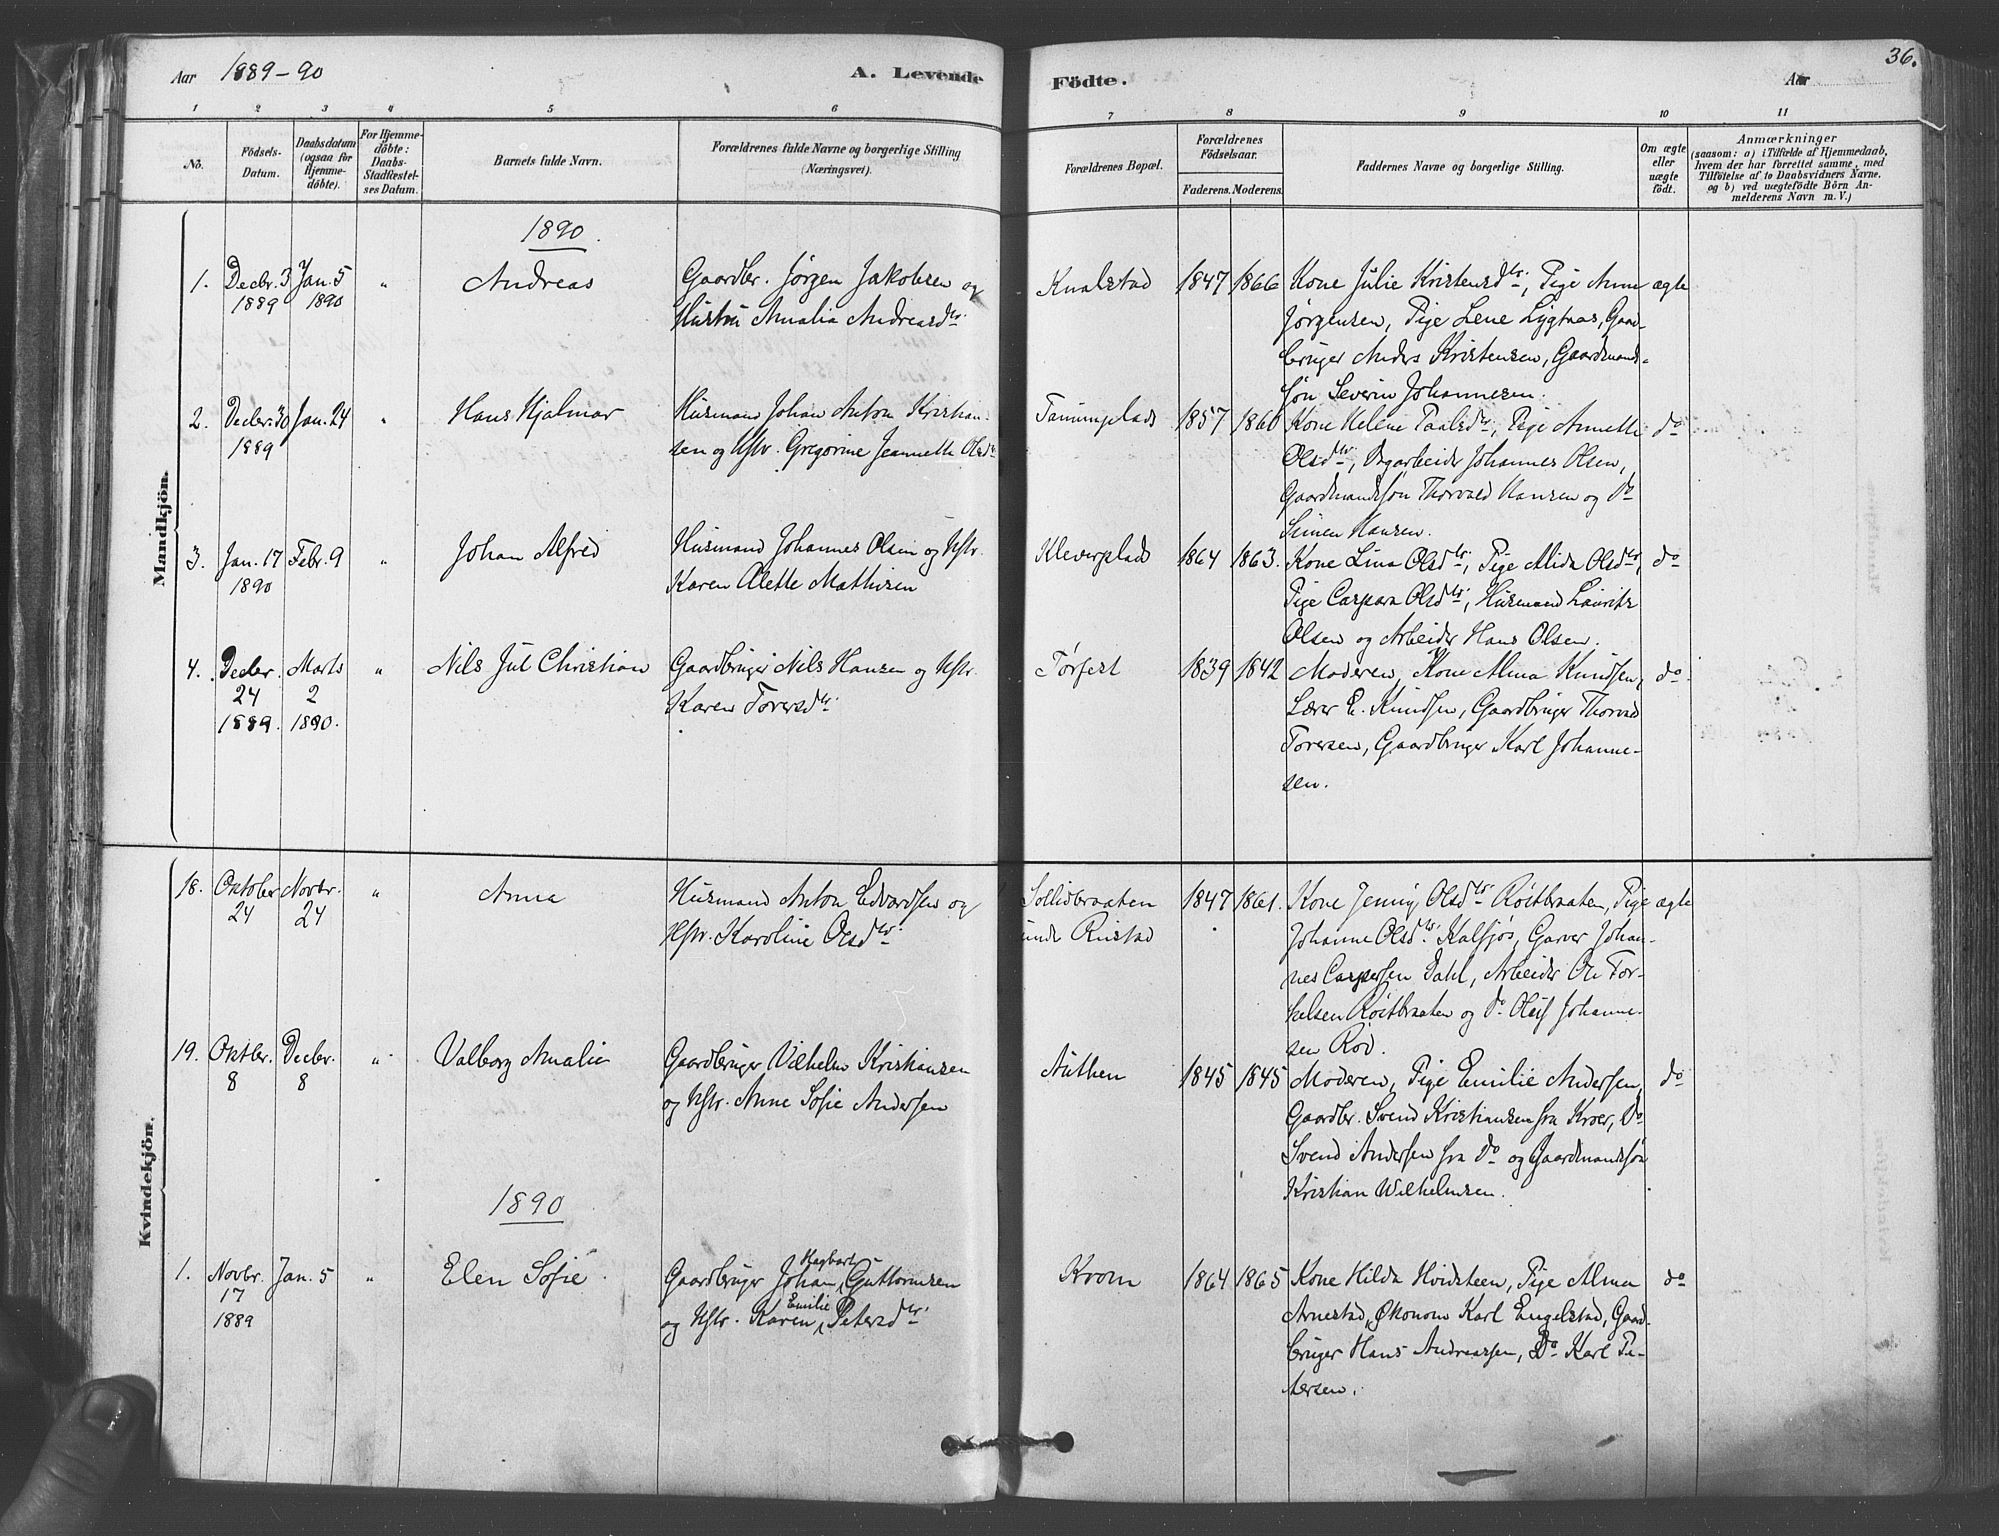 Aar 1889-90
A. Levende Födte.
Aar
36.
1 2 3 4 5 6 7 8 9 10 11
No.
Födsels-Datum.
Daabsdatum (ogsaa for Hjemme-döbte).
For Hjemme-döbte: Daabs-Stadfæstel-ses Datum.
Barnets fulde Navn.
Forældrenes fulde Navne og borgerlige Stilling (Næringsvei).
Forældrenes Bopæl.
Forældrenes Födselsaar.
Faderens. Moderens.
Faddernes Navne og borgerlige Stilling.
Om ægte eller uægte födt.
Anmærkninger
(saasom: a) i Tilfælde af Hjemmedaab,
hvem der har forrettet samme, med
Tilföielse af to Daabsvidners Navne,
og b) ved uægtefödte Börn An-
melderens Navn m. V.)
Mandkjön.
1890.
1. Decbr. 3 1889 Jan. 5 1890 " Andreas
Gaardbr. Jørgen Jakobsen og
Hustru Amalia Andreasdtr.
Knalstad 1847 1866
Kone Julie Kristensdtr., Pige Anne
Jørgensen, Pige Lene Lygtnas, Gaard-
bruger Anders Kristensen, Gaardmands-
søn Severin Johannesen.
ægte
2. Decbr. 30 1889 Jan. 24 " Hans Hjalmar
Husmand Johan Anton Kristian-
sen og Hstr. Gregorine Jeannette Olsdtr.
Tanumplads 1857 1860
Kone Helene Paalsdtr., Pige Annette
Olsdtr., Dagarbeider Johannes Olsen,
Gaardmandssøn Thorvald Hansen og Do
Simen Hansen.
do
3. Jan. 17 1890 Febr. 9 " Johan Alfred
Husmand Johannes Olsen og Hstr.
Karen Olette Mathisen
Kleverplads 1864 1863.
Kone Lina Olsdtr., Pige Alida Olsdtr.,
Pige Caspara Olsdtr., Husmand Lauritz
Olsen og Arbeider Hans Olsen.
do
4. Decbr. 24 1889. Marts 2 1890. " Nils Jul Christian
Gaardbruger Nils Hansen og Hstr.
Karen Toversdtr.
Tørfest 1839 1842
Moderen, Kone Alma Knudsen,
Lærer E. Knudsen, Gaardbruger Thorvald
Toversen, Gaardbruger Karl Johanne-
sen.
do.
Kvindekjön.
18. Oktober 24 Novbr. 24 " Anna
Husmand Anton Edvardsen og
Hstr. Karoline Olsdtr.
Sollidbraaten
under Rustad
1847 1861.
Kone Jenny Olsdtr. Røitbraaten, Pige
Johanne Olsdtr. Kalsjøs, Garver Johan-
nes Caspersen Dahl, Arbeider Ole Tor-
kelsen Røitbraaten og Do Oluf Johanne-
sen Rød.
ægte
19. Oktbr. 8 Decbr. 8 " Valborg Amalie
Gaardbruger Vilhelm Kristiansen
og Hstr. Anne Sofie Andersen
Authen 1845 1845
Moderen, Pige Emilie Andersen,
Gaardbr. Svend Kristiansen fra Kroer, Do
Svend Andersen fra Do og Gaardmandssøn
Kristian Wilhelmsen.
do
1890
1. Novbr. 17 1889 Jan. 5 " Elen Sofie
Gaardbruger Johan Hagbart Guttormsen
og Hstr. Karen Emilie Petersdtr.
Krom 1864 1865
Kone Hilda Hvidsteen, Pige Alma
Arnestad, Økonom Karl Engelstad, Gaard-
bruger Hans Andreassen, Do Karl Pe-
tersen.
do